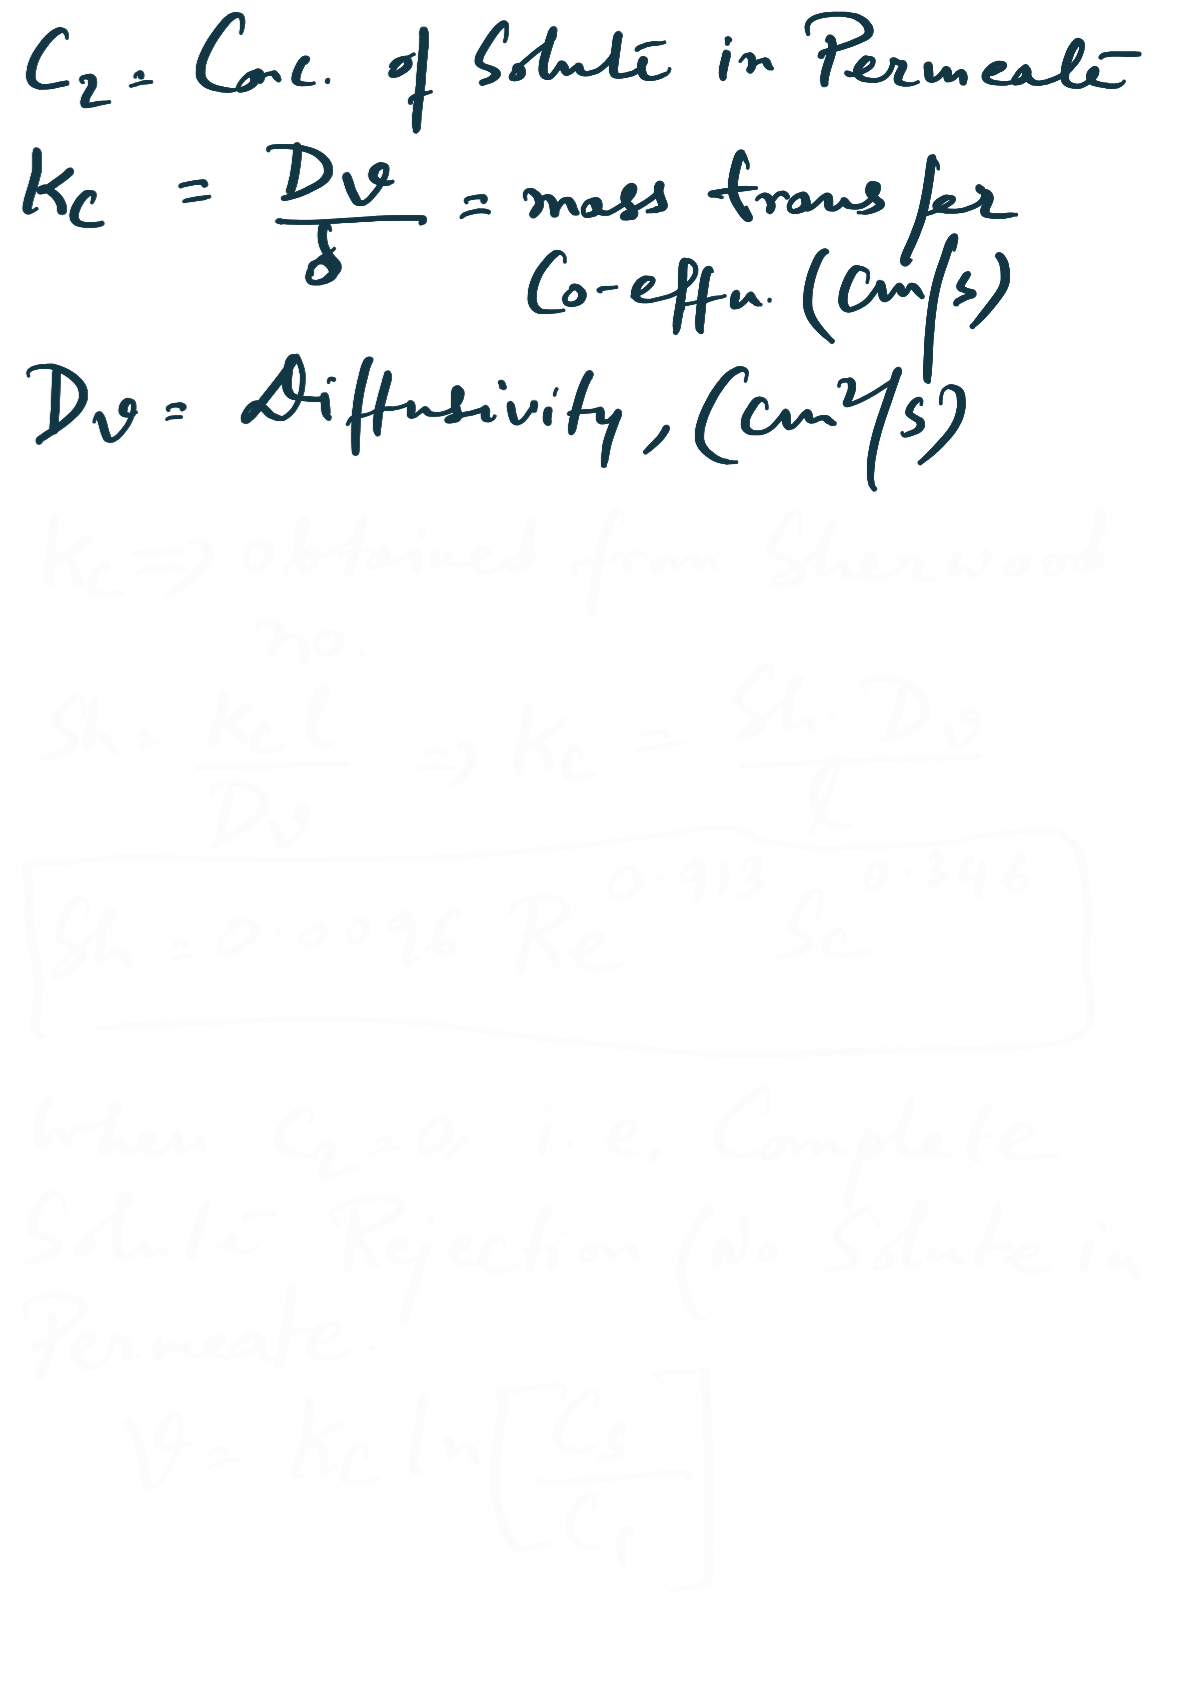 C₂ = Conc. of Solute in Permeate
Kc = Dv/δ = mass transfer
Co-effn. (cm/s)
Dv = Diffusivity, (cm²/s)
Kc ⇒ obtained from Sherwood
no.
Sh = Kc l/Dv ⇒ Kc = Sh. Dv/l
Sh = 0.0096 Re^0.913 Sc^0.346
When C₂ = 0, i.e, Complete
Solute Rejection (No Solute in
Permeate.
v = Kc ln[Cs/C₁]